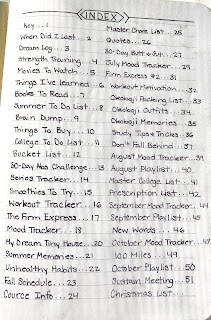 INDEX
Key....1
When Did I Last...2
Dream Log...3
Strength Training...4
Movies To Watch...5
Things I've learned...6
Books To Read...7
Summer To Do List...8
Brain Dump...9
Things To Buy...10
College To Do List...11
Bucket List...12
30-Day Abs Challenge...13
Series Tracker...14
Smoothies To Try...15
Workout Tracker...16
The Firm Express...17
Mood Tracker...18
My Dream Tiny House...20
Summer Memories...21
Unhealthy Habits...22
Fall Schedule...23
Cource Info...24
Master Chore List...25
Quotes...26
30-Day Butt & Gut...27
July Mood Tracker...29
Firm Express #2...31
Workout Motivation...32
Okoboji Packing List...33
Okoboji Outfits...34
Okoboji Memories...35
Study Tips & Tricks...36
Don't Fall Behind...37
August Mood Tracker...39
August Playlist...40
Master College List...41
Prescription List...42
September Mood Tracker...44
September Playlist...45
New Words...46
October Mood Tracker...48
100 Miles...49
October Playlist...50
Sustain Meeting...51
Christmas List...